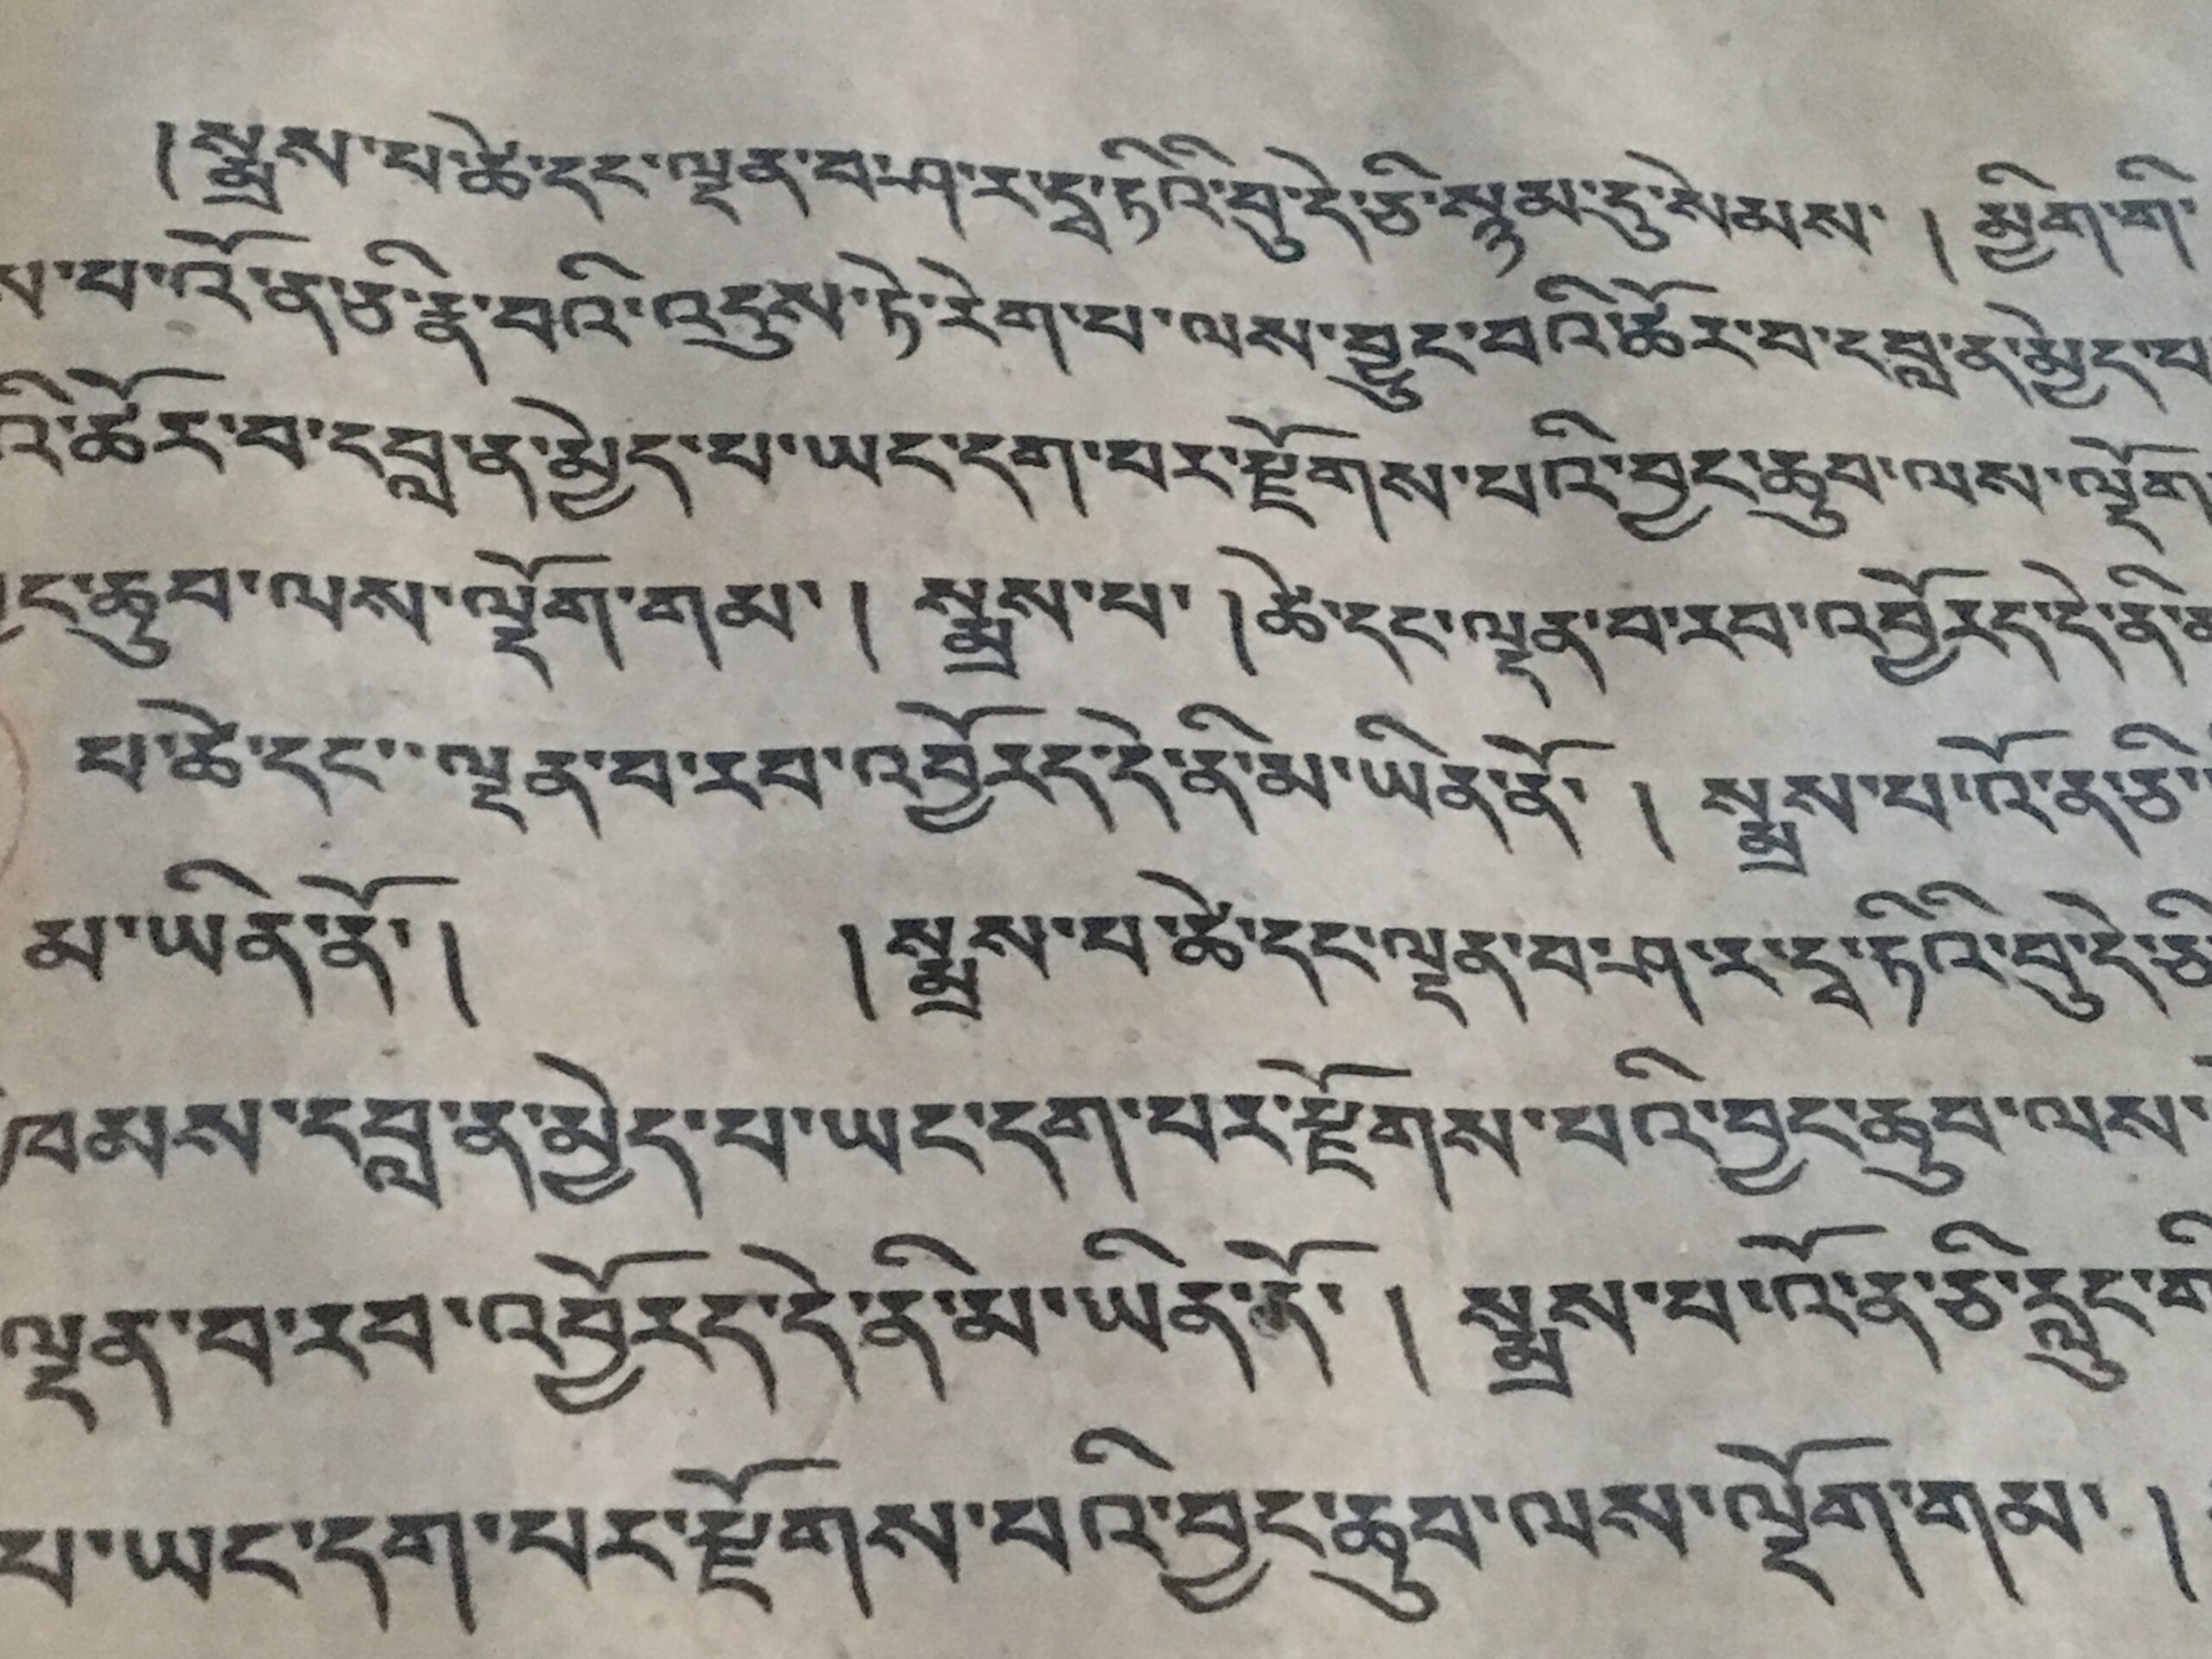 །སྨྲས་པ་ཚེ་དང་ལྡན་བ་ཤ་ར་དྭ་ཏིའི་བུ་དེ་ཅི་སྙམ་དུ་སེམས་ ། མྱིག་གི་
པ་འོ་ན་ཅི་རྣེ་བའི་འདུས་ཏེ་རེག་པ་ལས་བྱུང་བའི་ཚོར་བ་དབླ་ན་མྱེད་པ
འི་ཚོར་བ་དབླ་ན་མྱེད་པ་ཡང་དག་པར་རྫོགས་པའི་བྱང་ཆུབ་ལས་ལྡོག
ང་ཆུབ་ལས་ལྡོག་གམ་ ། སྨྲས་པ་ །ཚེ་དང་ལྡན་བ་རབ་འབྱོརད་དེ་ནི་མ
པ་ཚེ་དང་་ལྡན་བ་རབ་འབྱོརད་དེ་ནི་མ་ཡིན་ནོ་ ། སྨྲས་པ་འོ་ན་ཅི་
མ་ཡིན་ནོ་ ། །སྨྲས་པ་ཚེ་དང་ལྡན་བ་ཤ་ར་དྭ་ཏིའི་བུ་དེ་ཅི
ཁམས་དབླ་ན་མྱེད་པ་ཡང་དག་པར་རྫོགས་པའི་བྱང་ཆུབ་ལས་
ལྡན་བ་རབ་འབྱོརད་དེ་ནི་མ་ཡིན་ནོ་ ། སྨྲས་པ་འོ་ན་ཅི་རླུང་ག
པ་ཡང་དག་པར་རྫོགས་པའི་བྱང་ཆུབ་ལས་ལྡོག་གམ་ །